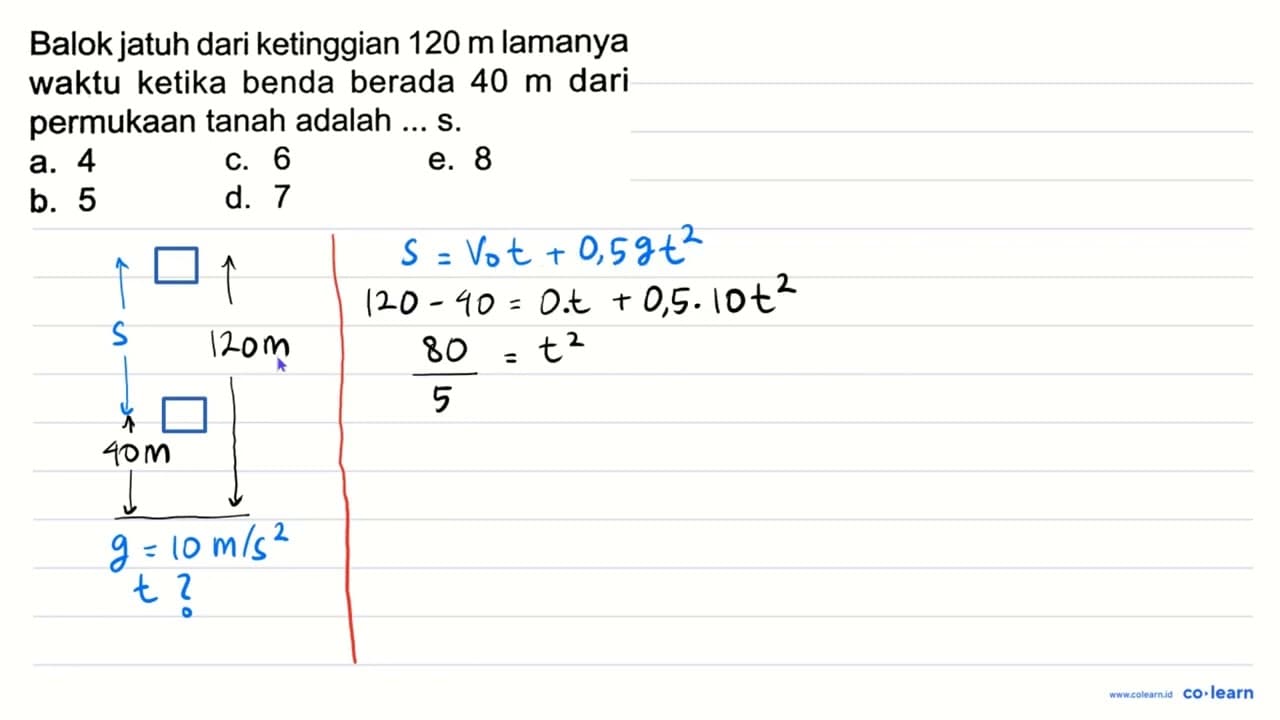 Balok jatuh dari ketinggian 120 m lamanya
waktu ketika benda berada 40 m dari
permukaan tanah adalah ... s.
a. 4 c. 6 e. 8
b. 5 d. 7
s
120m
40m
g = 10 m/s²
t ?
s = V₀t + 0,5gt²
120 - 40 = 0.t + 0,5.10t²
80/5 = t²
www.colearn.id co·learn